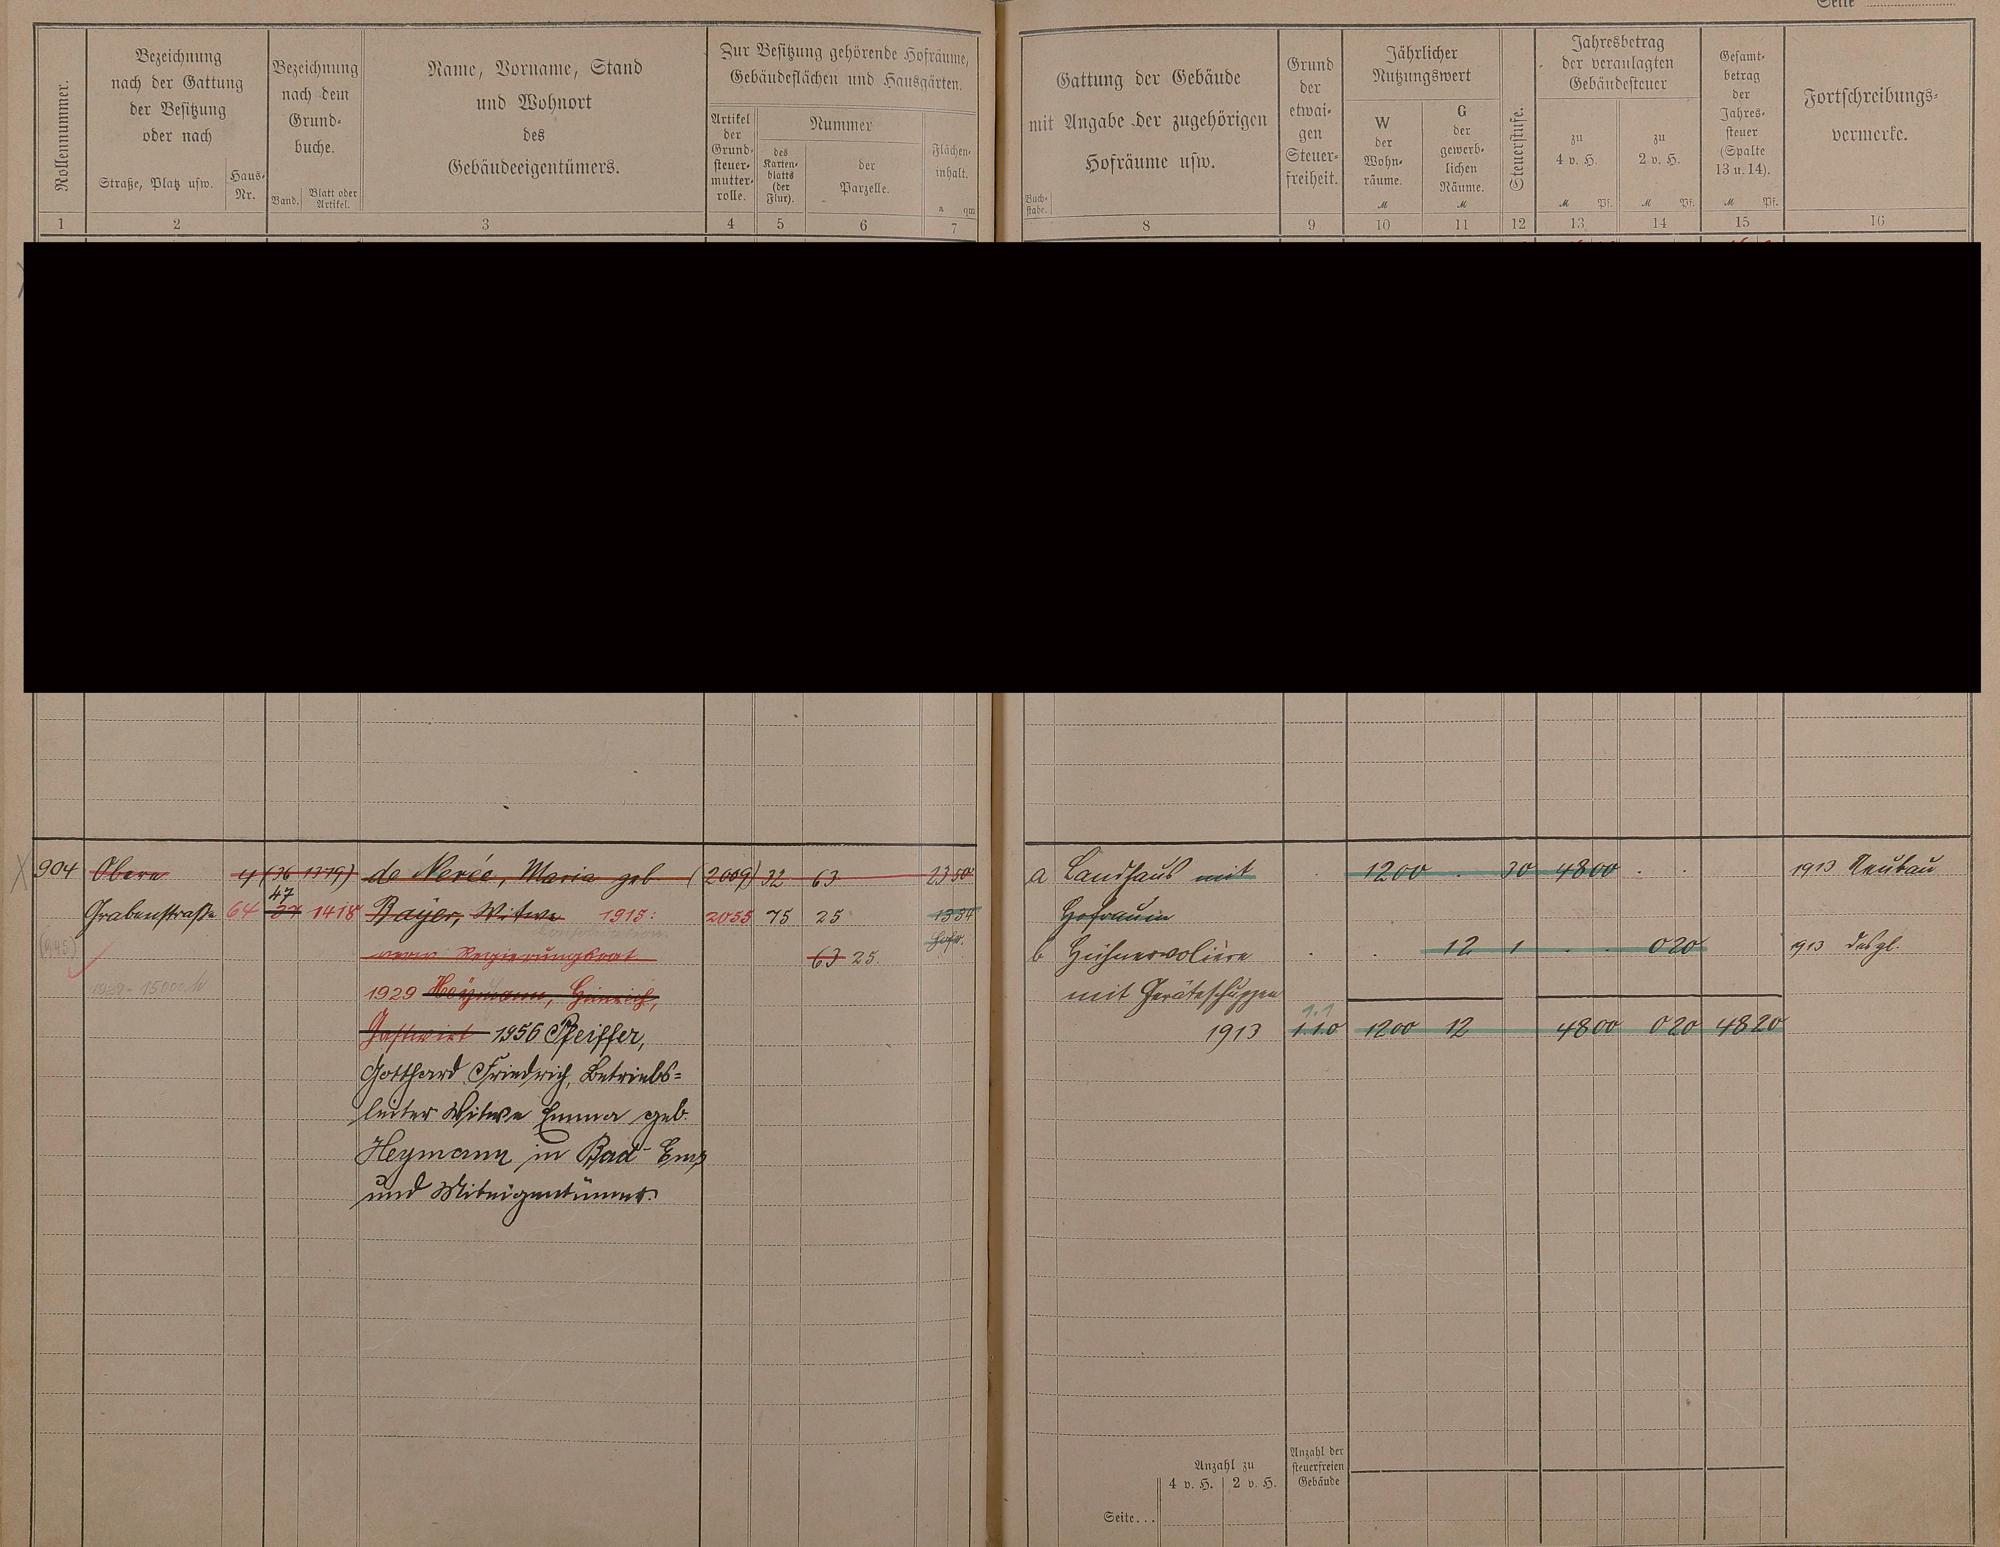 Seite
Rollennummer.
Bezeichnung
nach der Gattung
der Besitzung
oder nach
Straße, Platz usw.
Haus-
Nr.
Bezeichnung
nach dem
Grund-
buche.
Band.
Blatt oder
Artikel.
Name, Vorname, Stand
und Wohnort
des
Gebäudeeigentümers.
Zur Besitzung gehörende Hofräume,
Gebäudeflächen und Hausgärten.
Artikel
der
Grund-
steuer-
mutter-
rolle.
Nummer
des
Karten-
blatts
(der
Flur).
der
Parzelle.
Flächen-
inhalt.
a qm
Gattung der Gebäude
mit Angabe der zugehörigen
Hofräume usw.
Buch-
stabe.
Grund
der
etwai-
gen
Steuer-
freiheit.
Jährlicher
Nutzungswert
W
der
Wohn-
räume.
M
G
der
gewerb-
lichen
Räume.
M
Steuerstufe.
Jahresbetrag
der veranlagten
Gebäudesteuer
zu
4 v. H.
M Pf.
zu
2 v. H.
M Pf.
Gesamt-
betrag
der
Jahres-
steuer
(Spalte
13 u. 14).
M Pf.
Fortschreibungs-
vermerke.
1 2 3 4 5 6 7 8 9 10 11 12 13 14 15 16
904 Obere 4 (36 1379) de Nerée, Maria geb. (2009) 32 63 23 50
47
Grabenstraße 64 37 1418 Bayer, Witwe 1915: 2055 75 25 13 34
Konsolidation
Hofr.
(945) vom Regierungsrat 63 25.
1929 - 15000 M 1929 Heymann, Heinrich,
Gastwirt 1956 Pfeiffer,
Gotthard Friedrich, Betriebs=
leiter Witwe Emma geb.
Heymann in Bad-Ems
und Miteigentümer.
a Landhaus mit 1200 . 30 48 00 . . 1913 Neubau
Hofraum
b Hühnervoliere . . 12 1 . . 0 20 1913 desgl.
mit Geräteschuppen
1.1
1913 1.1.0 1200 12 48 00 0 20 48 20
Anzahl zu
4 v. H. 2 v. H.
Anzahl der
steuerfreien
Gebäude
Seite...